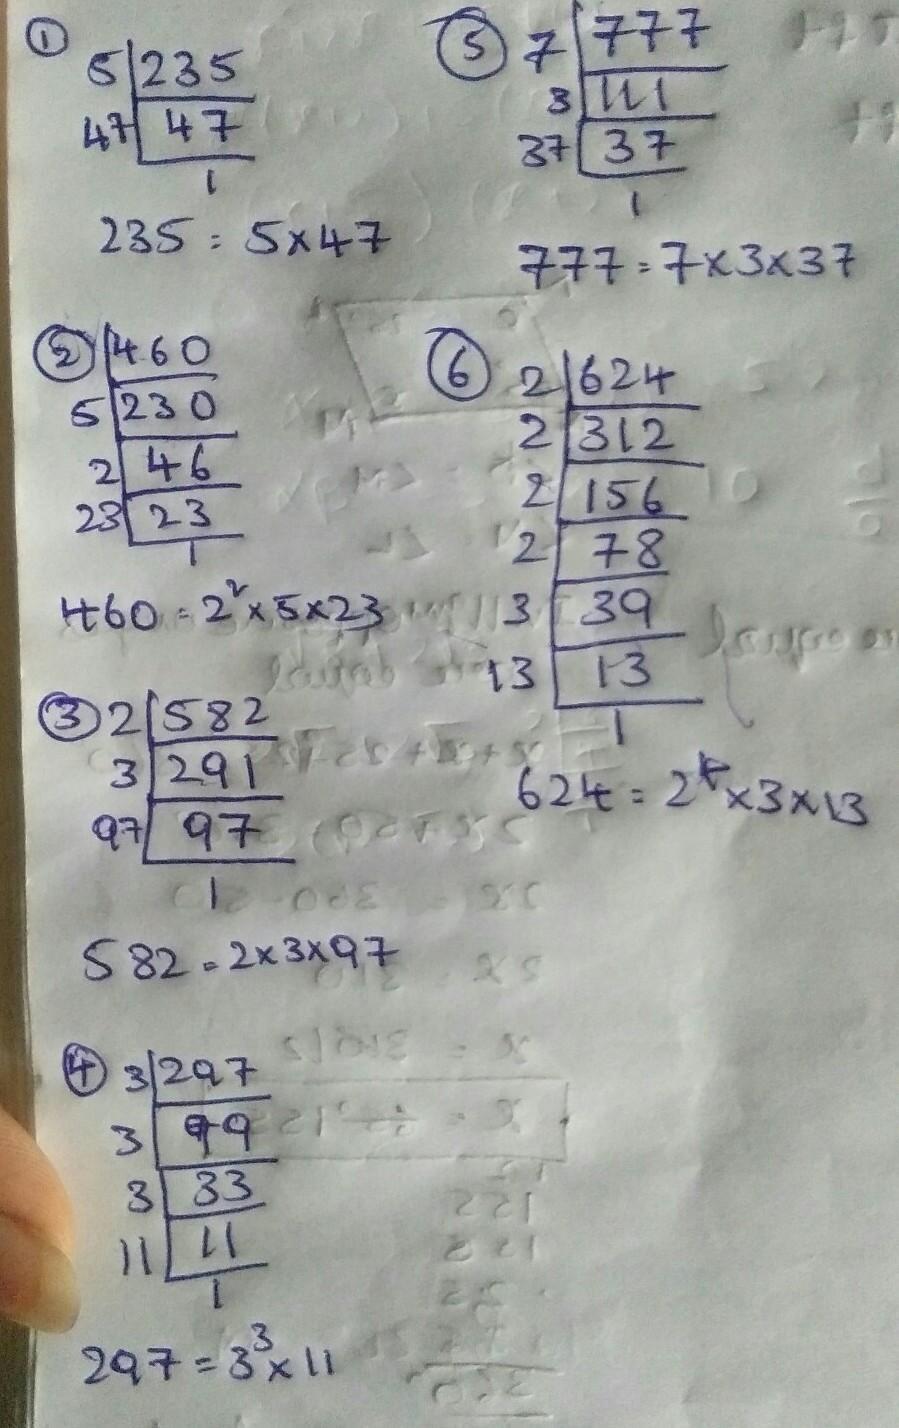 ①
5 235
47 47
1
235 = 5×47
② 460
5 230
2 46
23 23
1
460 = 2²×5×23
③ 2 582
3 291
97 97
1
582 = 2×3×97
④ 3 297
3 99
3 33
11 11
1
297 = 3³×11
⑤ 7 777
3 111
37 37
1
777 = 7×3×37
⑥ 2 624
2 312
2 156
2 78
3 39
13 13
1
624 = 2⁴×3×13